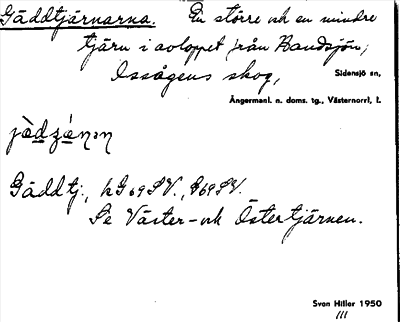 Gäddtjärnarna. En större och en mindre
tjärn i avloppet från Bandsjön,
Issågens skog,
Sidensjö sn,
Ångermanl. n. doms. tg., Västernorrl, l.
Gäddtj., hG 69 SV., G 69 SV.
Se Väster- och Östertjärnen.
Sven Hiller 1950
III